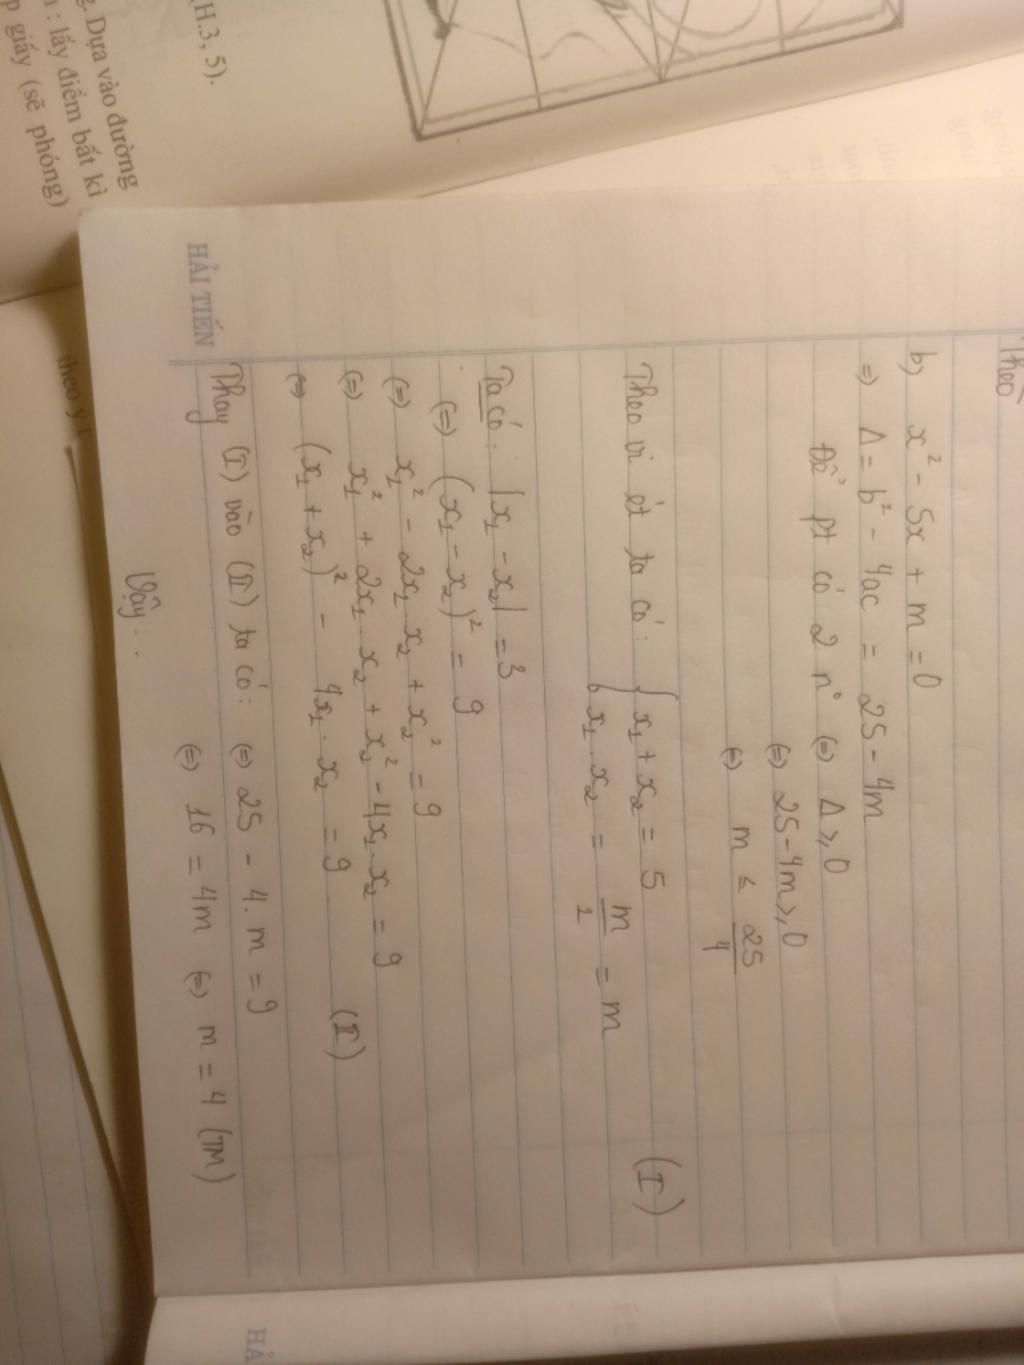 (H.3, 5).
Dựa vào đường
: lấy điểm bất kì
p giấy (sẽ phóng)
theo ý
HẢI TIẾN
Theo
b) x² - 5x + m = 0
=> Δ = b² - 4ac = 25 - 4m
Để pt có 2 n° (=) Δ ≥ 0
(=) 25 - 4m ≥ 0
(=) m ≤ 25/4
Theo vi ét ta có: { x₁ + x₂ = 5 (I)
x₁ . x₂ = m/1 = m
Ta có: |x₁ - x₂| = 3
(=) (x₁ - x₂)² = 9
(=) x₁² - 2x₁.x₂ + x₂² = 9
(=) x₁² + 2x₁.x₂ + x₂² - 4x₁.x₂ = 9
(=) (x₁ + x₂)² - 4x₁.x₂ = 9 (II)
Thay (I) vào (II) ta có: (=) 25 - 4.m = 9
(=) 16 = 4m (=) m = 4 (TM)
Vậy..
HẢ